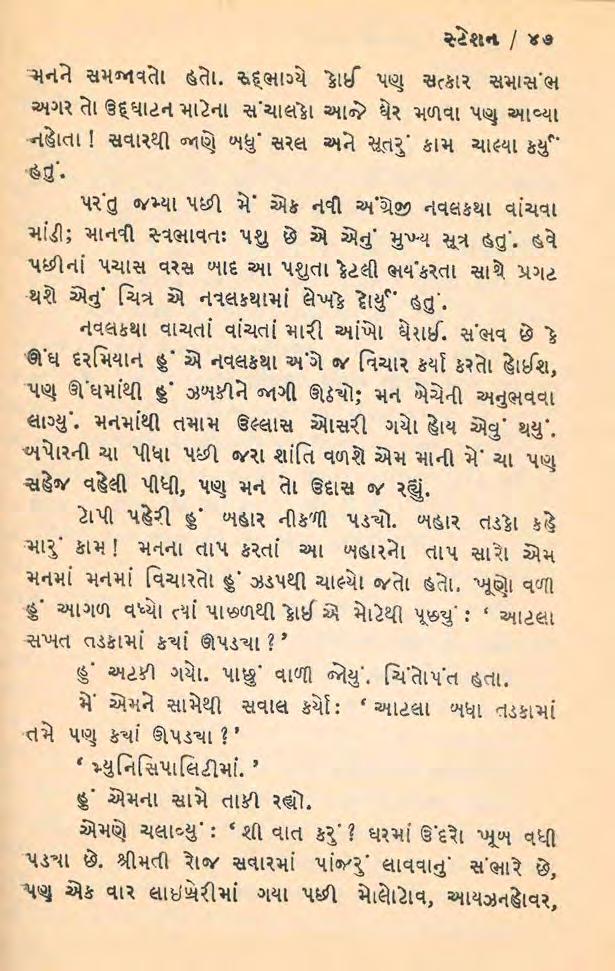 સ્ટેશન / ૪૭
મનને સમજાવતો હતો. સદ્‌ભાગ્યે કોઈ પણ સત્કાર સમારંભ
અગર તો ઉદ્‌ઘાટન માટેના સંચાલકો આજે ઘેર મળવા પણ આવ્યા
નહોતા! સવારથી જાણે બધું સરલ અને સૂતરું કામ ચાલ્યા કર્યું
હતું.
પરંતુ જમ્યા પછી મેં એક નવી અંગ્રેજી નવલકથા વાંચવા
માંડી; માનવી સ્વભાવતઃ પશુ છે એ એનું મુખ્ય સૂત્ર હતું. હવે
પછીનાં પચાસ વરસ બાદ આ પશુતા કેટલી ભયંકરતા સાથે પ્રગટ
થશે એનું ચિત્ર એ નવલકથામાં લેખકે દોર્યું હતું.
નવલકથા વાચતાં વાંચતાં મારી આંખો ઘેરાઈ. સંભવ છે કે
ઊંઘ દરમિયાન હું એ નવલકથા અંગે જ વિચાર કર્યા કરતો હોઈશ,
પણ ઊંઘમાંથી હું ઝબકીને જાગી ઊઠ્યો; મન બેચેની અનુભવવા
લાગ્યું. મનમાંથી તમામ ઉલ્લાસ ઓસરી ગયો હોય એવું થયું.
બપોરની ચા પીધા પછી જરા શાંતિ વળશે એમ માની મેં ચા પણ
સહેજ વહેલી પીધી, પણ મન તો ઉદાસ જ રહ્યું.
ટોપી પહેરી હું બહાર નીકળી પડ્યો. બહાર તડકો કહે
મારું કામ! મનના તાપ કરતાં આ બહારનો તાપ સારો એમ
મનમાં મનમાં વિચારતો હું ઝડપથી ચાલ્યો જતો હતો. ખૂણો વળી
હું આગળ વધ્યો ત્યાં પાછળથી કોઈ એ મોટેથી પૂછ્યું : ‘ આટલા
સખત તડકામાં ક્યાં ઊપડ્યા ?’
હું અટકી ગયો. પાછું વાળી જોયું. ચિંતોપંત હતા.
મેં એમને સામેથી સવાલ કર્યો : ‘ આટલા બધા તડકામાં
તમે પણ ક્યાં ઊપડ્યા ?’
‘ મ્યુનિસિપાલિટીમાં. ’
હું એમના સામે તાકી રહ્યો.
એમણે ચલાવ્યું : ‘ શી વાત કરું ? ઘરમાં ઉંદરો ખૂબ વધી
પડ્યા છે. શ્રીમતી રોજ સવારમાં પાંજરું લાવવાનું સંભારે છે,
પણ એક વાર લાઇબ્રેરીમાં ગયા પછી મોલોટોવ, આયઝનહોવર,